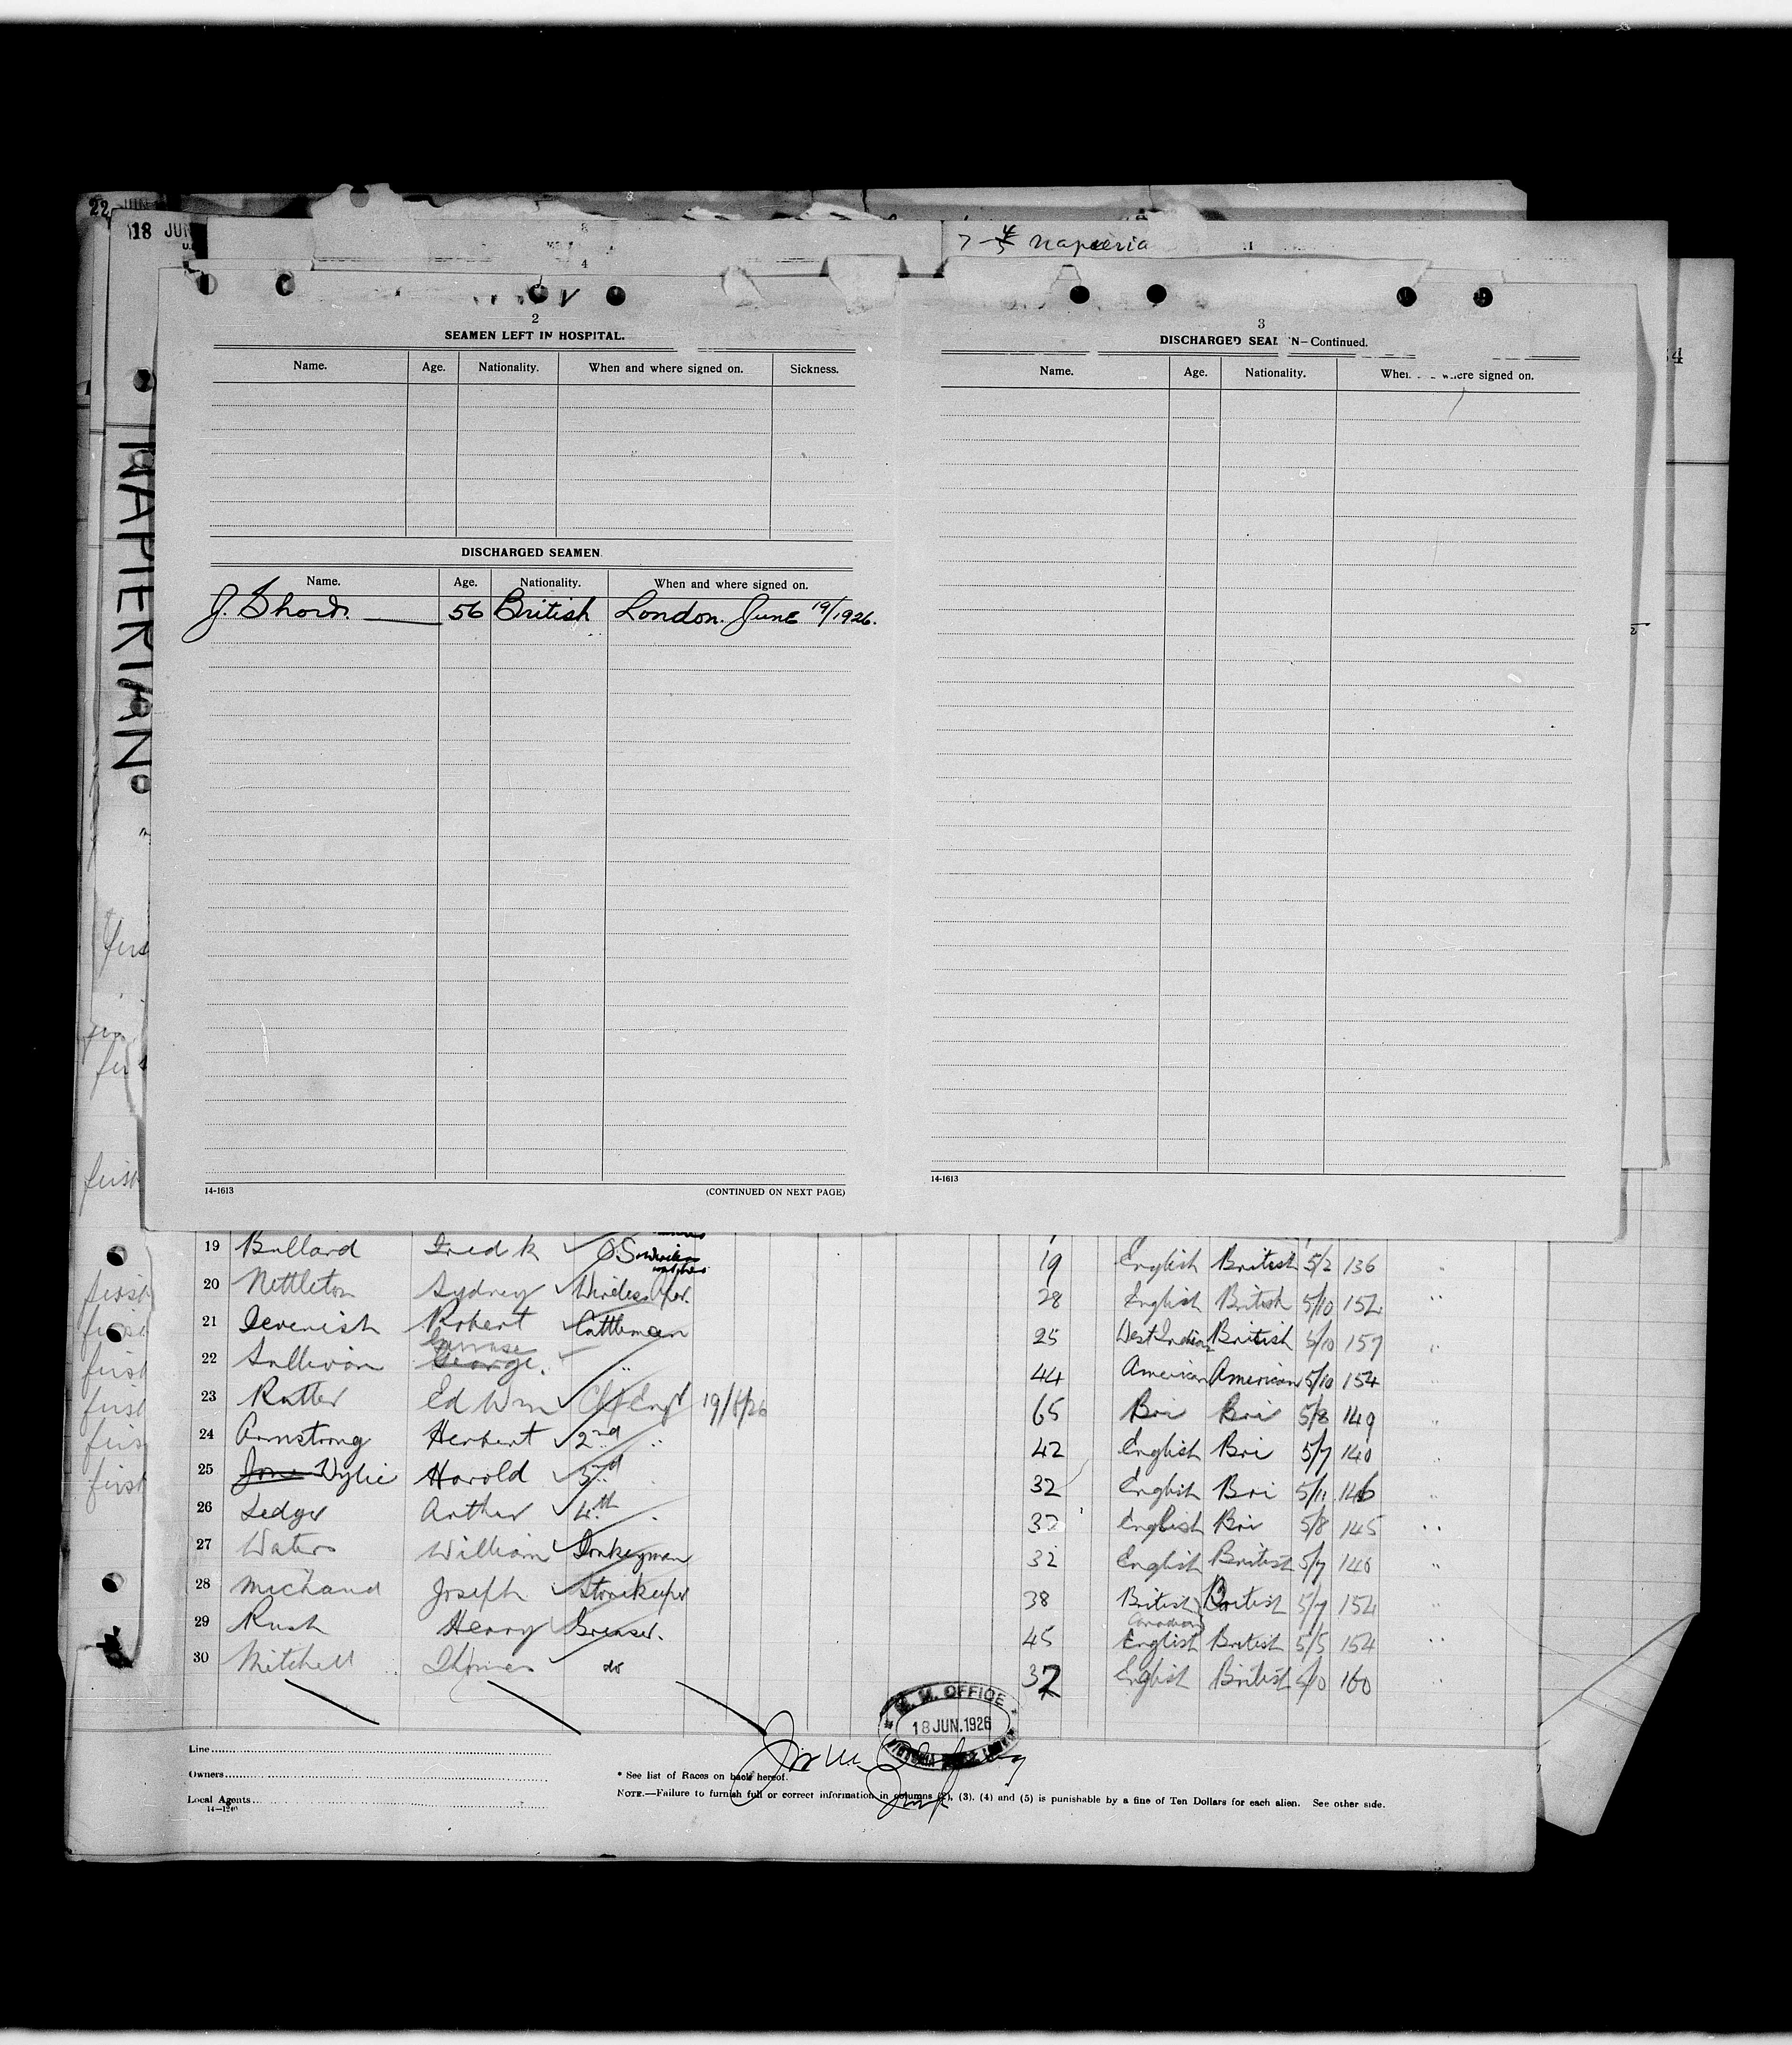 22 JUN
18 JUN
7-4 Naperia
4
NAPIERIAN
2
SEAMEN LEFT IN HOSPITAL.
Name. Age. Nationality. When and where signed on. Sickness.
DISCHARGED SEAMEN
Name. Age. Nationality. When and where signed on.
J. Short. 56 British London. June 19/1926.
14-1613 (CONTINUED ON NEXT PAGE)
3
DISCHARGED SEAMEN—Continued.
Name. Age. Nationality. When and where signed on.
14-1613
19 Bullard Fredk O.S. 19 English British 5/2 136
20 Nettleton Sydney Wireless Oper. 28 English British 5/10 152 "
21 Devenish Robert Cattleman 25 West Indian British 5/10 157 "
22 Sullivan George " 44 American American 5/10 154
23 Rutter Ed Wm Chf Engr 19/6/26 65 Bri Bri 5/8 149 "
24 Armstrong Herbert 2nd " 42 English Bri 5/7 140 "
25 Jones Wylie Harold 3rd " 32 English Bri 5/11 146 "
26 Ledger Arthur 4th " 32 English Bri 5/8 145 "
27 Waters William Donkeyman 32 English British 5/7 140 "
28 Michaud Joseph Storekeeper 38 British Canadian British 5/7 154 "
29 Rush Henry Greaser. 45 English British 5/5 154 "
30 Mitchell Thomas do 37 English British 5/10 160 "
M. M. OFFICE
18 JUN. 1926
VICTORIA DOCK LONDON
Line
Owners
Local Agents
14-1240
* See list of Races on back hereof.
NOTE.—Failure to furnish full or correct information in columns (2), (3), (4) and (5) is punishable by a fine of Ten Dollars for each alien. See other side.
first
first
first
first
first
first
first
first
first